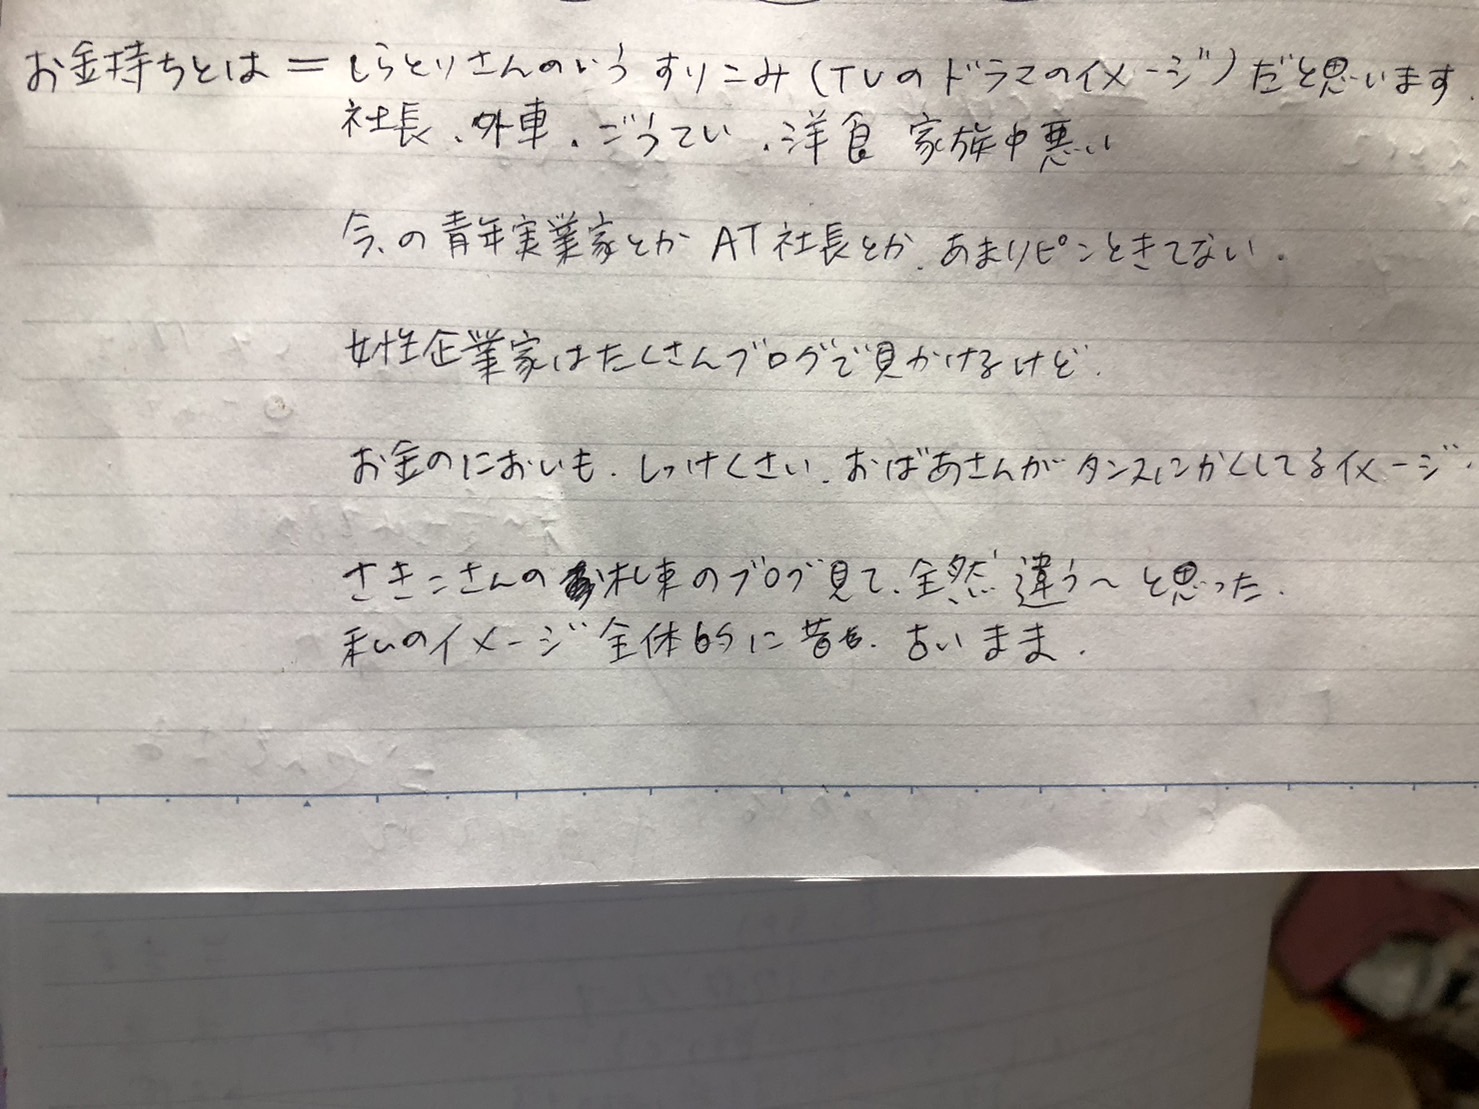 お金持ちとは＝しらとりさんのいう すりこみ（TVのドラマのイメージ）だと思います.
社長、外車、ごうてい、洋食 家族中悪い
今の青年実業家とか AT社長とか、あまりピンときてない.
女性企業家はたくさんブログで見かけるけど.
お金のにおいも、しっけくさい、おばあさんがタンスにかくしてるイメージ.
さきこさんの 札束のブログ見て、全然違う〜と思った.
私のイメージ全体的に昔 古いまま.